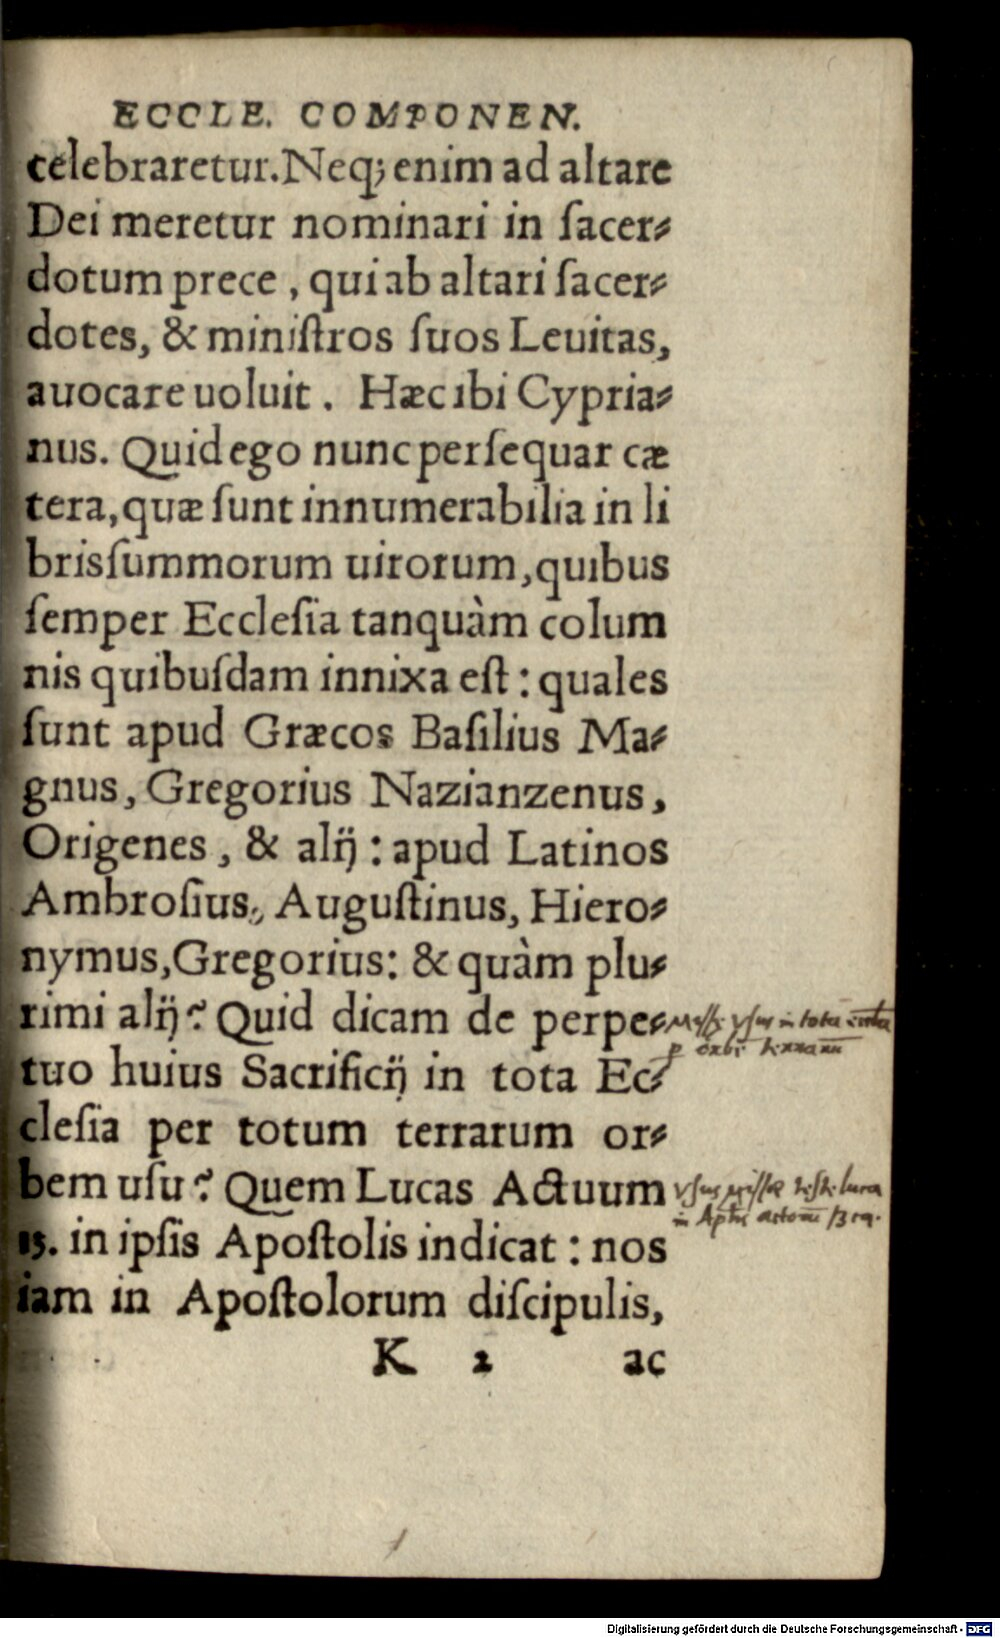 ECCLE. COMPONEN.
celebraretur. Neq; enim ad altare
Dei meretur nominari in ſacer⸗
dotum prece, qui ab altari ſacer⸗
dotes, & miniſtros ſuos Leuitas,
auocare uoluit. Hæc ibi Cypria⸗
nus. Quid ego nunc perſequar cæ
tera, quæ ſunt innumerabilia in li
bris ſummorum uirorum, quibus
ſemper Eccleſia tanquàm colum
nis quibuſdam innixa eſt: quales
ſunt apud Græcos Baſilius Ma⸗
gnus, Gregorius Nazianzenus,
Origenes, & alij: apud Latinos
Ambroſius, Auguſtinus, Hiero⸗
nymus, Gregorius: & quàm plu⸗
rimi alij? Quid dicam de perpe⸗
tuo huius Sacrificij in tota Ec⸗
cleſia per totum terrarum or⸗
bem uſu? Quem Lucas Actuum
13. in ipſis Apoſtolis indicat: nos
iam in Apoſtolorum diſcipulis,
K 2 ac
vſus in tota
vſus miſſæ
in
Digitalisierung gefördert durch die Deutsche Forschungsgemeinschaft - DFG